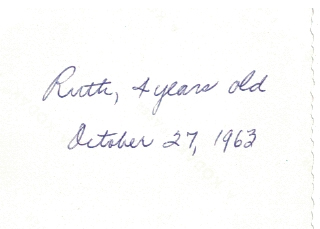 Ruth, 4 years old
October 27, 1963